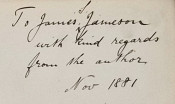 To James Jameson
with kind regards
from the author
Nov 1881